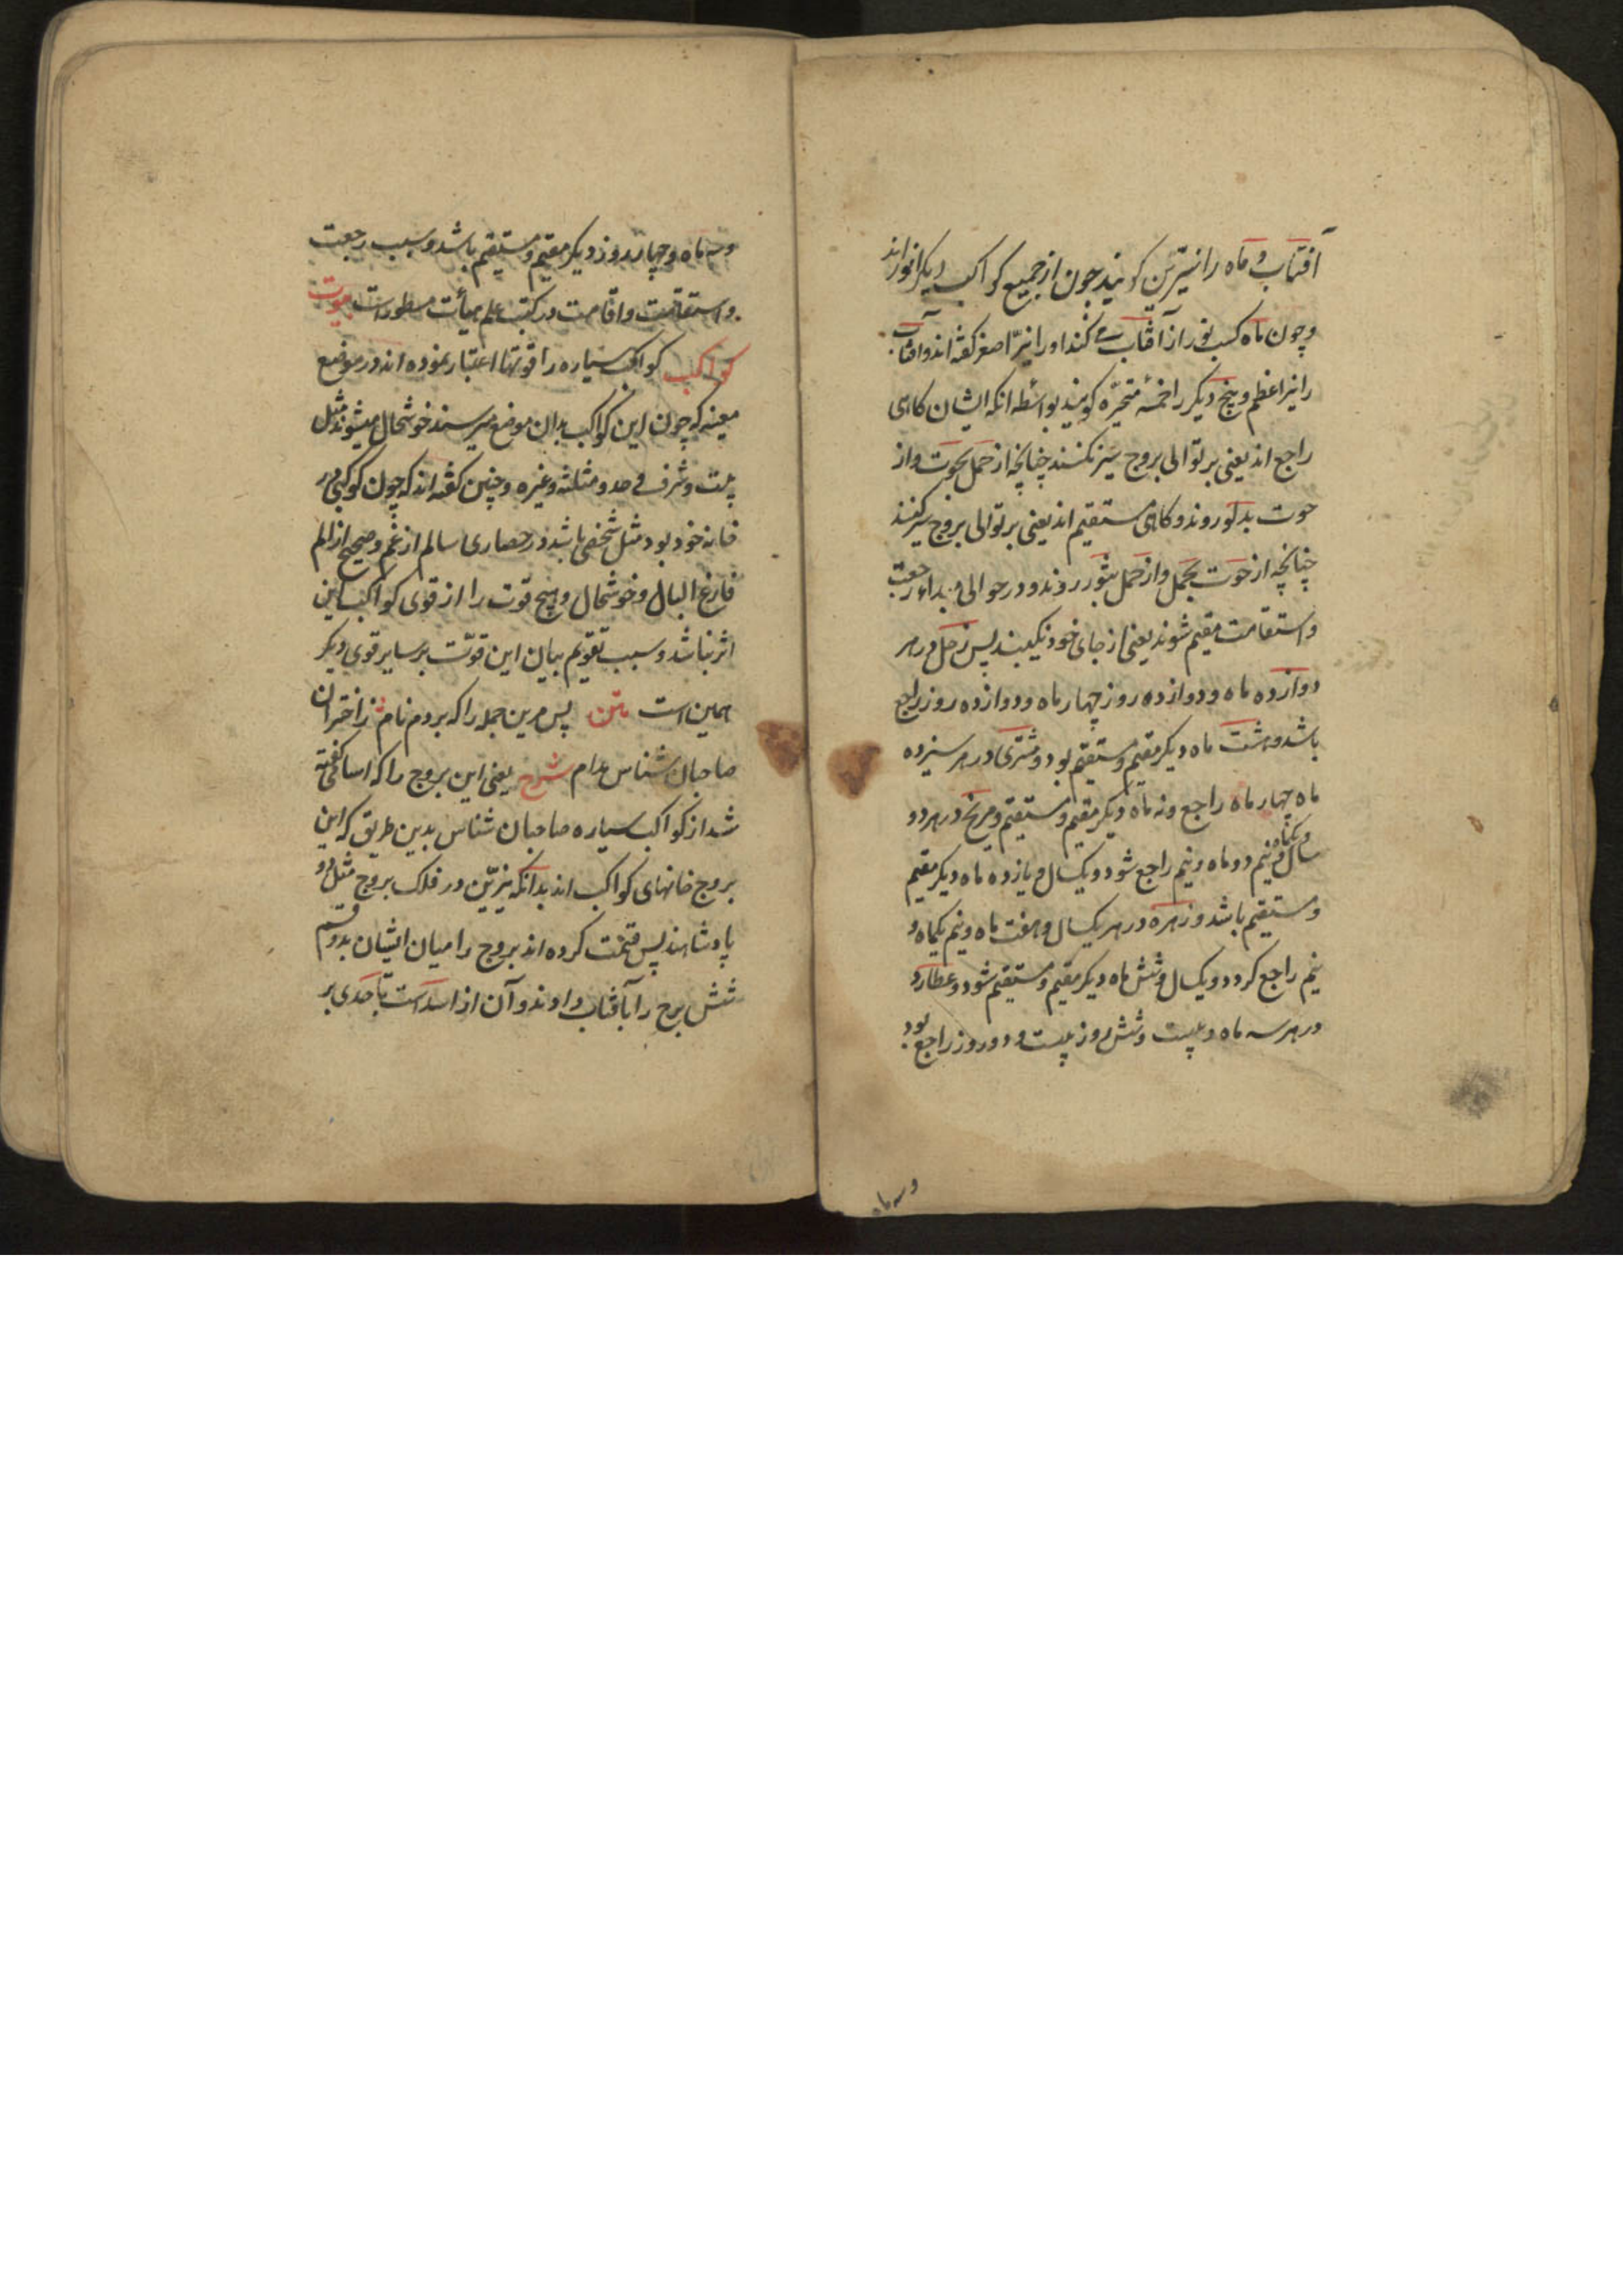 آفتاب و ماه را نیرین کویند چون از جمیع کواکب دیکر انورند
و چون ماه کسب نور از آفتاب می کند او را نیر اصغر کفته اند و آفتاب
را نیر اعظم و پنج دیکر را خمسه متحیره کویند بواسطه انکه ایشان کاهی
راجع اند یعنی بر توالی بروج سیر نکنند چنانچه از حمل بحوت و از
حوت بدلو روند و کاهی مستقیم اند یعنی بر توالی بروج سیر کنند
چنانچه از حوت بحمل و از حمل بثور روند و در حوالی مبداء رجعت
و استقامت مقیم شوند یعنی از جای خود نکیبند پس زحل در هر
دوازده ماه و دوازده روز چهار ماه و دوازده روز راجع
باشد و هشت ماه دیکر مقیم و مستقیم بود و مشتری در هر سیزده
ماه چهار ماه راجع و نه ماه دیکر مقیم و مستقیم و مریخ در هر دو
سال و یکماه و نیم دو ماه و نیم راجع شود و یکسال و یازده ماه دیکر مقیم
و مستقیم باشد و زهره در هر یکسال و هفت ماه و نیم یکماه و
نیم راجع کردد و یکسال و شش ماه دیکر مقیم و مستقیم شود و عطارد
در هر سه ماه و بیست و شش روز بیست و دو روز راجع بود
و سه ماه
و سه ماه و چهار روز دیکر مقیم و مستقیم باشد و سبب رجعت
و استقامت و اقامت در کتب علم هیأت مسطور است بیوت
کواکب کواکب سیاره را قوتها اعتبار نموده اند در موضع
معینه که چون این کواکب بدان موضع میرسند خوشحال میشوند مثل
بیت و شرف و حد و مثلثه و غیره و چنین کفته اند که چون کوکبی در
خانه خود بود مثل شخصی باشد در حصاری سالم از غم و صحیح از الم
فارغ البال و خوشحال و هیچ قوت را از قوی کواکب این
اثر نباشد و سبب تقویم بیان این قوت بر سایر قوی دیکر
همین است متن پس مرین جمله را که بردم نام ز اختران
صاحبان شناس مدام شرح یعنی این بروج را که اسا کفته
شد از کواکب سیاره صاحبان شناس بدین طریق که این
بروج خانهای کواکب اند بدانکه نیرین در فلک بروج مثل دو
پادشاهند پس قسمت کرده اند بروج را میان ایشان بدو قسم
شش برج را بآفتاب دادند و آن از اسد است تا جدی بر